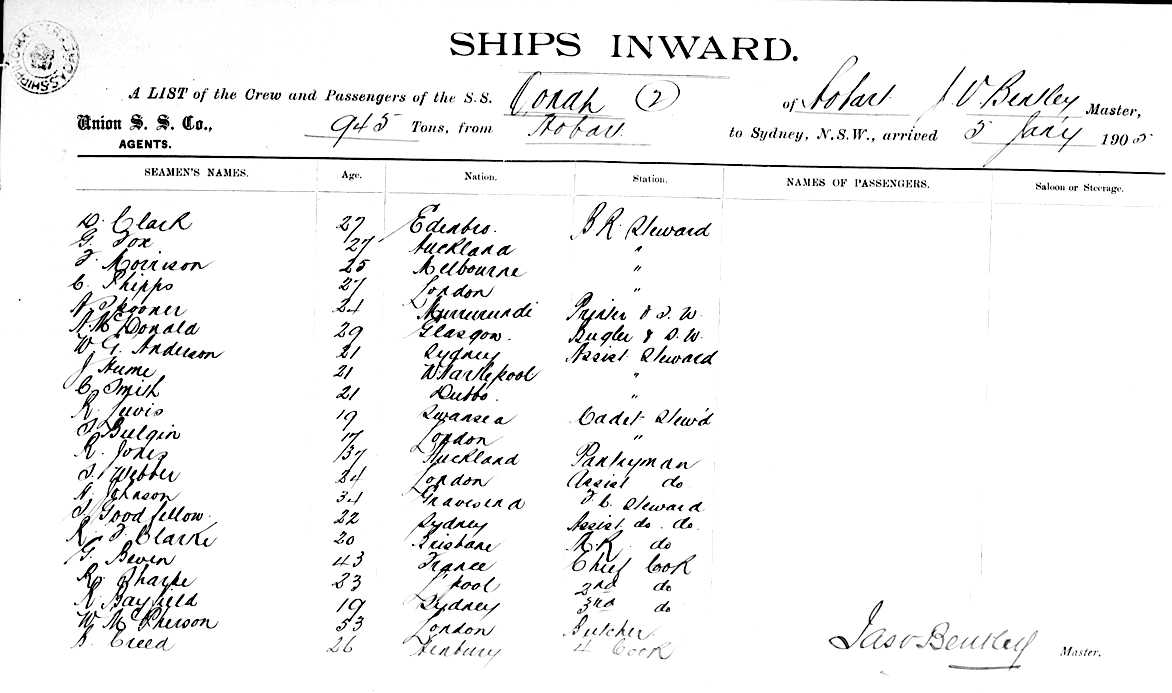 SHIPS INWARD.
A LIST of the Crew and Passengers of the S.S. Oonah (2) of Hobart J V Bentley Master,
Union S. S. Co., 945 Tons, from Hobart to Sydney, N.S.W., arrived 5 Jany 1905
AGENTS.
SEAMEN'S NAMES. Age. Nation. Station. NAMES OF PASSENGERS. Saloon or Steerage.
D. Clark 27 Edenbro. B R. Steward
G. Fox 27 Auckland "
F. Morrison 25 Melbourne "
C. Phipps 27 London "
Spooner 24 Murrurundi Printer & S. W.
McDonald 29 Glasgow. Bugler & S. W.
W G. Anderson 21 Sydney Assist Steward
J Hume 21 W Hartlepool "
C. Smith 21 Dubbo. "
R. Lewis 19 Swansea Cadet Stew'd
Bulgin 17 London "
R. Jones 37 Auckland Pantryman
Webber 24 London Assist do
Johnson 34 Gravesend Steward
Goodfellow. 22 Sydney Assist do. do.
R. F. Clarke 20 Brisbane do
G. Beven 43 France Chief Cook
R. Sharpe 23 L'pool 2nd do
Bayfield 19 Sydney 3rd do
W McPherson 53 London Butcher
Creed 26 Henbury 4 Cook
Jas V Bentley Master.